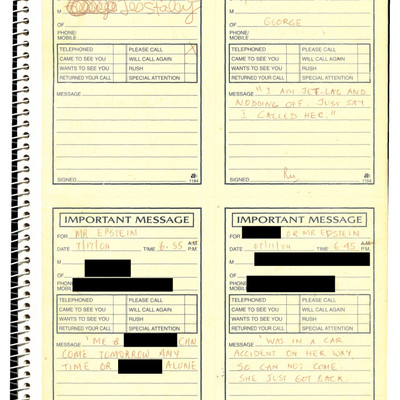 M
OF
PHONE/
MOBILE
TELEPHONED PLEASE CALL X
CAME TO SEE YOU WILL CALL AGAIN
WANTS TO SEE YOU RUSH
RETURNED YOUR CALL SPECIAL ATTENTION
MESSAGE
SIGNED 1184
M
GEORGE
OF
PHONE/
MOBILE
TELEPHONED PLEASE CALL
CAME TO SEE YOU WILL CALL AGAIN
WANTS TO SEE YOU RUSH
RETURNED YOUR CALL SPECIAL ATTENTION
MESSAGE "I AM JET-LAG AND
NODDING OFF. JUST SAY
I CALLED HER."
SIGNED 1184
IMPORTANT MESSAGE
FOR MR EPSTEIN
DATE 7/17/04 TIME 6.35 A.M. P.M.
M
OF
PHONE/
MOBILE
TELEPHONED PLEASE CALL
CAME TO SEE YOU WILL CALL AGAIN
WANTS TO SEE YOU RUSH
RETURNED YOUR CALL SPECIAL ATTENTION
MESSAGE "ME & CAN
COME TOMORROW ANY
TIME OR ALONE
IMPORTANT MESSAGE
FOR OR MR EPSTEIN
DATE TIME 6.45 A.M. P.M.
M
OF
PHONE/
MOBILE
TELEPHONED PLEASE CALL
CAME TO SEE YOU WILL CALL AGAIN
WANTS TO SEE YOU RUSH
RETURNED YOUR CALL SPECIAL ATTENTION
MESSAGE "WAS IN A CAR
ACCIDENT ON HER WAY,
SO CAN NOT COME.
SHE JUST GOT BACK.